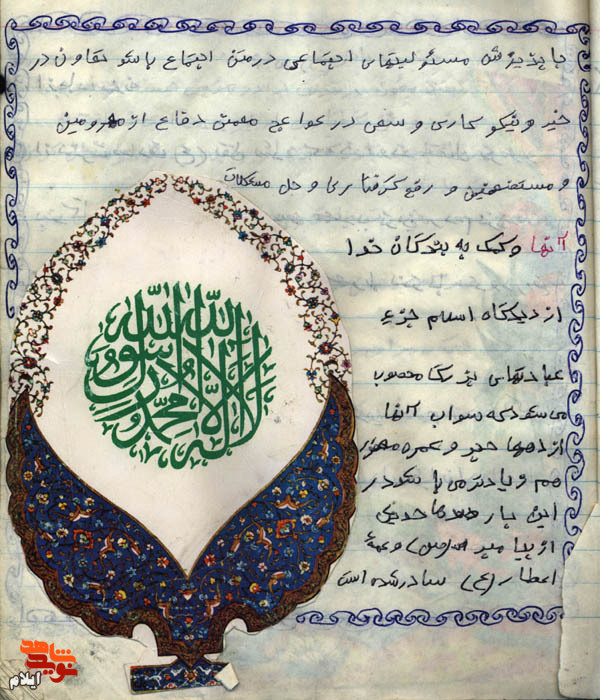 با پذیرش مسئولیتهای اجتماعی در متن اجتماع باشو تعاون در
خیر و نیکو کاری و سعی در حوائج مهمتی دفاع از محرومین
و مستضعفین و رفع گرفتاری و حل مشکلات
آنها و کمک به بندگان خدا
از دیدگاه اسلام جزء
عبادتهای بزرگ محصوب
می شود که سواب آنها
از دهها حج و عمره
هم زیادتر می باشد در
این باره دهها حدیث
از پیامبر (ص) و عمهٔ
اعطار (ع) سادر شده است
لا اله الا الله محمد رسول الله
نوید شاهد
ایلام